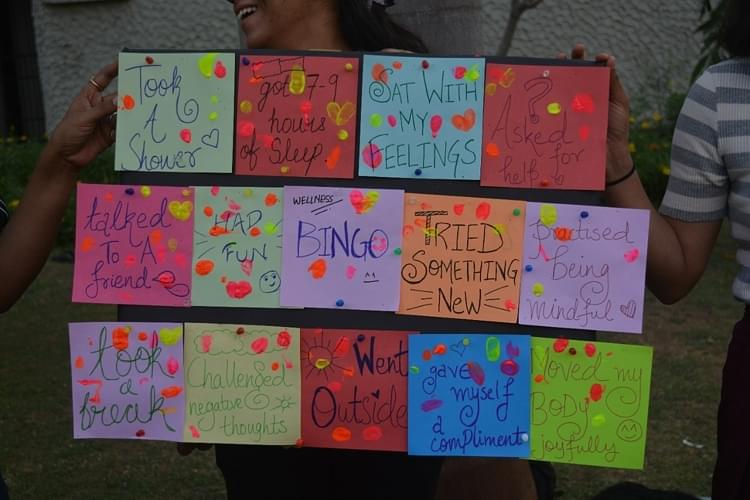 Took
A
Shower
got 7-9
hours
of Sleep
SAT WITH
MY
FEELINGS
?
Asked for
help
talked
To A
friend
HAD
FUN
WELLNESS
BINGO
TRIED
SOMETHING
NEW
practised
being
mindful
took
a
break
Challenged
negative
thoughts
Went
Outside
gave
myself
a
compliment
Moved my
BODY
joyfully